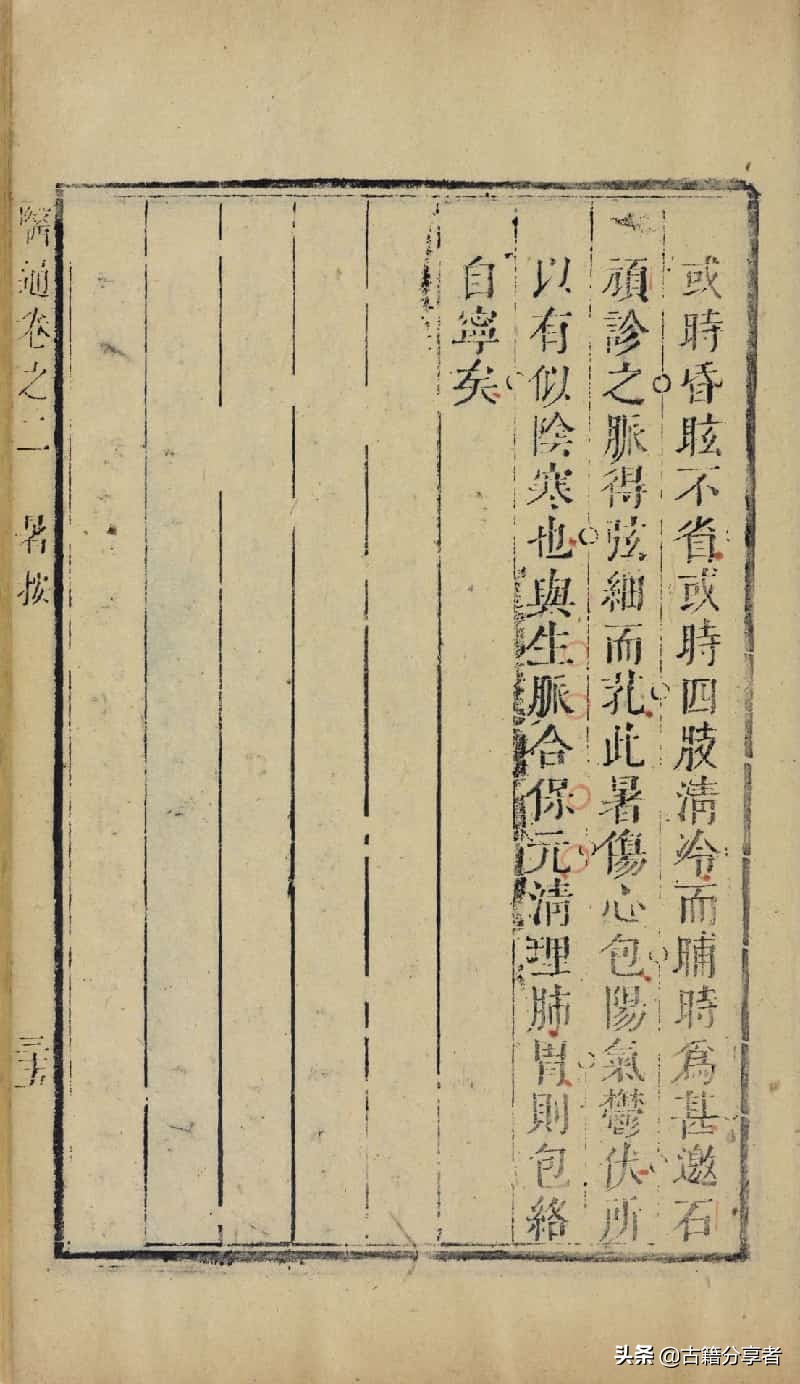 或時昏眩不省或時四肢清冷而晡時爲甚邀石
頑診之脈得弦細而芤此暑傷心包陽氣鬱伏所
以有似陰寒也與生脈合保元清理肺胃則包絡
自寧矣
醫通卷之二 暑按 三十五
头条 @古籍分享者